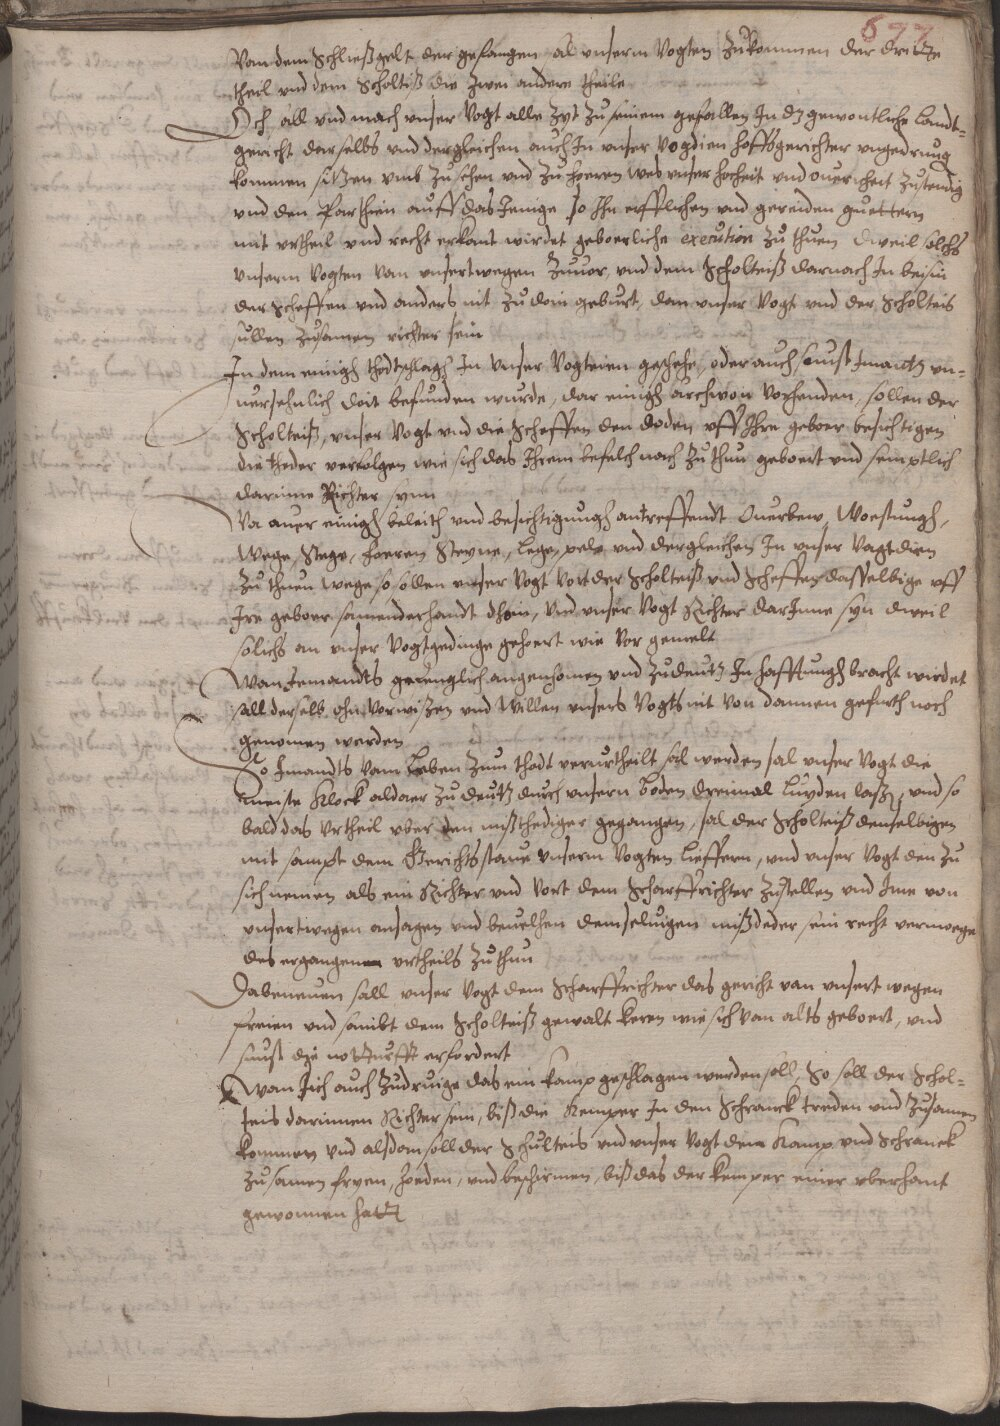 677
Van dem Schließgelt der gefangen al unserm Vogten zukommen der dritte
theil und dem Scholtiß die zwei andere theile
Och all und mach unser Vogt alle Zyt zu seinem gefallen In dz gewontliche Landt-
gericht darselbs und dergleichen auch In unser Vogdien hoffsgerichter ungedrung
kommen sitzen umb zu sehen und zu hoeren wes unser hocheit und ouericheit zustendig
und den Parthien auff das Jenige so Ihn erfflichen und gereiden guettern
mit urtheil und recht erkant wirdet geboerliche execution zu thuen dweil solchs
unserm Vogten van unsertwegen zuuor, und dem Scholteiß darnach In beisin
der Scheffen und anders nit zu doin geburt, dan unser Vogt und der Scholteis
sullen zusamen richter sein
In dem einigh thodtschlagh In unser Vogteien geschehe, oder auch sunst Imantz un-
uersehnlich doit befunden wurde, dar einigh archwon vorhenden, sollen der
Scholteiß, unser Vogt und die Scheffen den doden uff Ihre geboer besichtigen
die theder verfolgen wie sich das Ihrem befelch nach zu thun geboert und semptlich
darinne Richter synn
Va auer einigh beleith und besichtigungh antreffendt Ouerbew, Woestungh,
Wege, Stege, hoeren Steyne, Lege, pele und dergleichen In unser Vagtdien
zu thuen wege so sollen unser Vogt vort der Scholteiß und Scheffen dasselbige uff
Ire geboer samenderhandt thoin, und unser Vogt Richter darInne syn dweil
solichs an unser Vogtgedinge gehoert wie vor gemelt
Wan Jemandts gefenglich angenhomen und zu deutz In hafftungh bracht wirdet
sall derselb ohn vorwißen und Willen unsers Vogts nit von dannen gefurth noch
genomen werden
So Imandts vam Leben zum thodt verurtheilt sal werden sal unser Vogt die
meiste Klock aldaer zu deutz durch unsern boden dreimal Luyden laß[en], und so
bald das Urtheil uber den mißthediger gegangen, sal der Scholteiß denselbigen
mit sampt dem Gerichtsstaue unserm Vogten lieffern, und unser Vogt den zu
sich nemen als ein Richter und vort dem Scharffrichter zustellen und Ime von
unsertwegen ansagen und beuelhen demseluigen mißdeder sein recht vermoege
des ergangenen urtheils zu thun
Dabeneuen sall unser Vogt dem Scharffrichter das gericht van unsert wegen
freien und sambt dem Scholteiß gewalt keren wie sich van alts geboert, und
sunst die notturfft erfordert
Wan sich auch zudruige das ein kamp geschlagen werden soll, So soll der Schol-
teis darinnen Richter sein, biß die Kemper In den Schranck treden und zusamen
kommen und alsdan soll der Schulteis und unser Vogt den Kamp und Schranck
zusamen fryen, hoeden, und beschirmen, biß das der kemper einer uberhant
gewonnen hatt